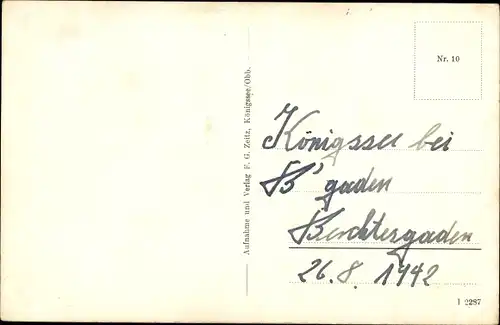 Nr. 10
Aufnahme und Verlag F. G. Zeitz, Königssee/Obb.
Königssee bei
B'gaden
Berchtesgaden
26.8.1942
I 2287